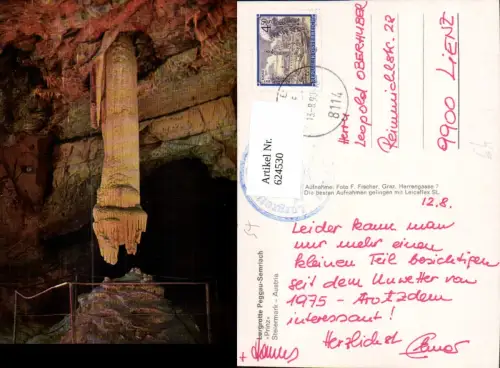 Artikel Nr.
624530
8114
Herrn
Leopold OBERHUBER
9900 LIENZ
Aufnahme: Foto F. Fischer, Graz, Herrengasse 7
Die besten Aufnahmen gelingen mit Leicaflex SL
12.8.
Leider kann man
nur mehr einen
kleinen Teil besichtigen
seit dem Unwetter von
1975 - Trotzdem
interessant!
Herzlichst
Lurgrotte Peggau-Semriach
»Prinz«
Steiermark - Austria
+ Hannes